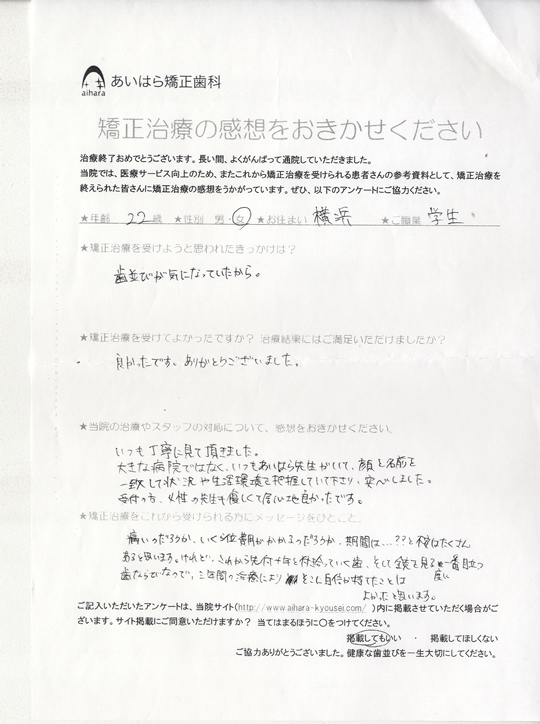 aihara
あいはら矯正歯科
矯正治療の感想をおきかせください
治療終了おめでとうございます。長い間、よくがんばって通院していただきました。
当院では、医療サービス向上のため、またこれから矯正治療を受けられる患者さんの参考資料として、矯正治療を
終えられた皆さんに矯正治療の感想をうかがっています。ぜひ、以下のアンケートにご協力ください。
★年齢 22歳 ★性別 男・女 ★お住まい 横浜 ★ご職業 学生
★矯正治療を受けようと思われたきっかけは？
歯並びが気になっていたから。
★矯正治療を受けてよかったですか？ 治療結果にはご満足いただけましたか？
良かったです。ありがとうございました。
★当院の治療やスタッフの対応について、感想をおきかせください。
いつも丁寧に見て頂きました。
大きな病院ではなく、いつもあいはら先生がいて、顔と名前を
一致して状況や生活環境を把握していて下さり、安心しました。
受付の方、女性の先生も優しくて居心地良かったです。
★矯正治療をこれから受けられる方にメッセージをひとこと。
痛いっだろうか、いくら位費用がかかるっだろうか、期間は…??と不安はたくさん
あると思います。けれど、これから先何十年と付き合っていく歯、そして鏡で見る度に一番目立つ
歯ならびなので、三年間の治療により そこに自信が持てたことは
よかったと思います。
ご記入いただいたアンケートは、当院サイト(http://www.aihara-kyousei.com/ )内に掲載させていただく場合がご
ざいます。サイト掲載にご同意いただけますか？ 当てはまるほうに○をつけてください。
掲載してもいい ・ 掲載してほしくない
ご協力ありがとうございました。健康な歯並びを一生大切にしてください。